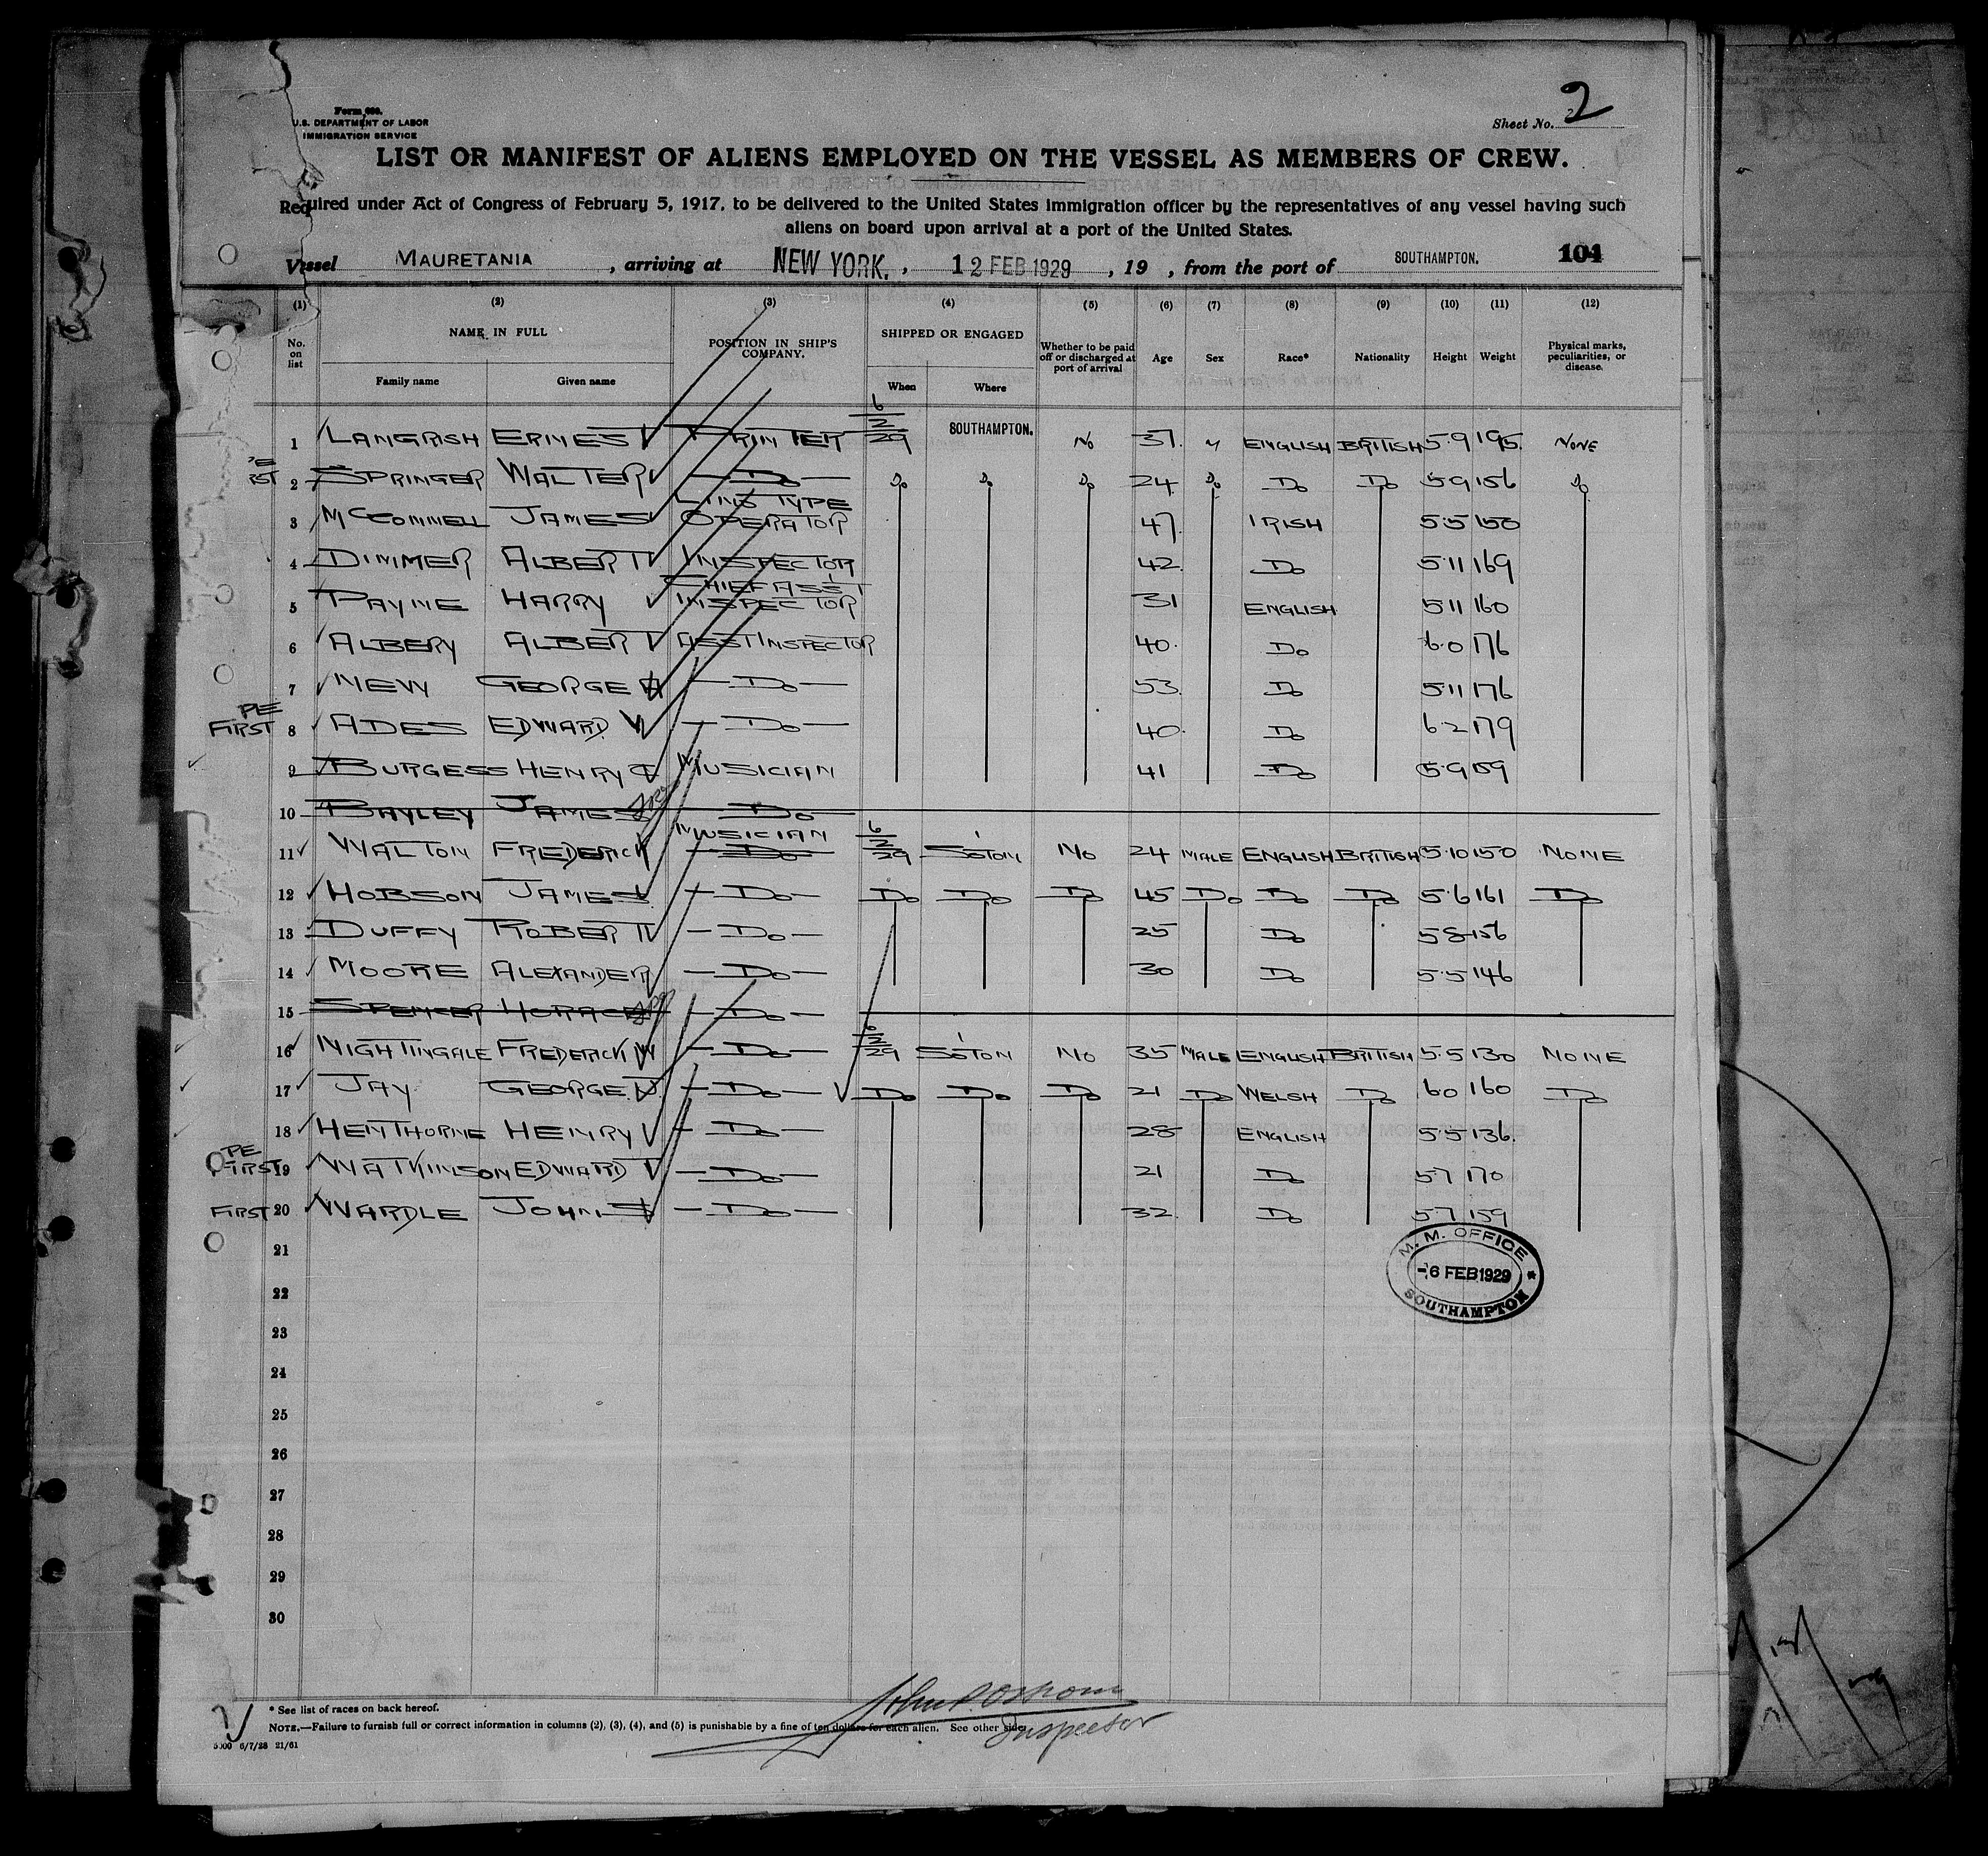 Form 680.
U.S. DEPARTMENT OF LABOR
IMMIGRATION SERVICE
Sheet No. 2
LIST OR MANIFEST OF ALIENS EMPLOYED ON THE VESSEL AS MEMBERS OF CREW.
Required under Act of Congress of February 5, 1917, to be delivered to the United States immigration officer by the representatives of any vessel having such
aliens on board upon arrival at a port of the United States.
Vessel MAURETANIA, arriving at NEW YORK., 12 FEB 1929, 19 , from the port of SOUTHAMPTON. 104
(1) (2) (3) (4) (5) (6) (7) (8) (9) (10) (11) (12)
No. on list NAME IN FULL Family name Given name POSITION IN SHIP'S COMPANY. SHIPPED OR ENGAGED When Where Whether to be paid off or discharged at port of arrival Age Sex Race* Nationality Height Weight Physical marks, peculiarities, or disease.
1 LANGRISH ERNEST PRINTER 6/2/29 SOUTHAMPTON. NO 37. M ENGLISH BRITISH 5.9 195. NONE
2 SPRINGER WALTER — Do — Do Do Do 24 Do Do Do 5.9 156 Do
3 McCONNELL JAMES LINO TYPE OPERATOR 47. IRISH 5.5 150
4 DIMMER ALBERT INSPECTOR 42. Do 5.11 169
5 PAYNE HARRY CHIEF ASST INSPECTOR 31 ENGLISH 5.11 160
6 ALBERY ALBERT ASST INSPECTOR 40. Do 6.0 176
7 NEW GEORGE — Do — 53. Do 5.11 176
PE FIRST 8 ADES EDWARD — Do — 40. Do 6.2 179
9 BURGESS HENRY C MUSICIAN 41 Do 5.9 159
10 BAYLEY JAMES — Do —
11 WALTON FREDERICK MUSICIAN — Do — 6/2/29 S'OTON NO 24 MALE ENGLISH BRITISH 5.10 150 NONE
12 HOBSON JAMES — Do — Do Do Do 45 Do Do Do 5.6 161 Do
13 DUFFY ROBERT — Do — 25 Do 5.8 156
14 MOORE ALEXANDER — Do — 30 Do 5.5 146
15 SPENCER HORACE — Do —
16 NIGHTINGALE FREDERICK W — Do — 6/2/29 S'OTON NO 35 MALE ENGLISH BRITISH 5.5 130 NONE
17 JAY GEORGE — Do — Do Do Do 21 Do WELSH Do 6.0 160 Do
18 HENTHORNE HENRY — Do — 28 ENGLISH 5.5 136.
PE FIRST 19 WATKINSON EDWARD — Do — 21 Do 5.7 170
FIRST 20 WARDLE JOHN S — Do — 32 Do 5.7 159
21
22
23
24
25
26
27
28
29
30
M. M. OFFICE
-6 FEB 1929
SOUTHAMPTON
* See list of races on back hereof.
NOTE.—Failure to furnish full or correct information in columns (2), (3), (4), and (5) is punishable by a fine of ten dollars for each alien. See other side.
Inspector
5000 6/7/28 21/61